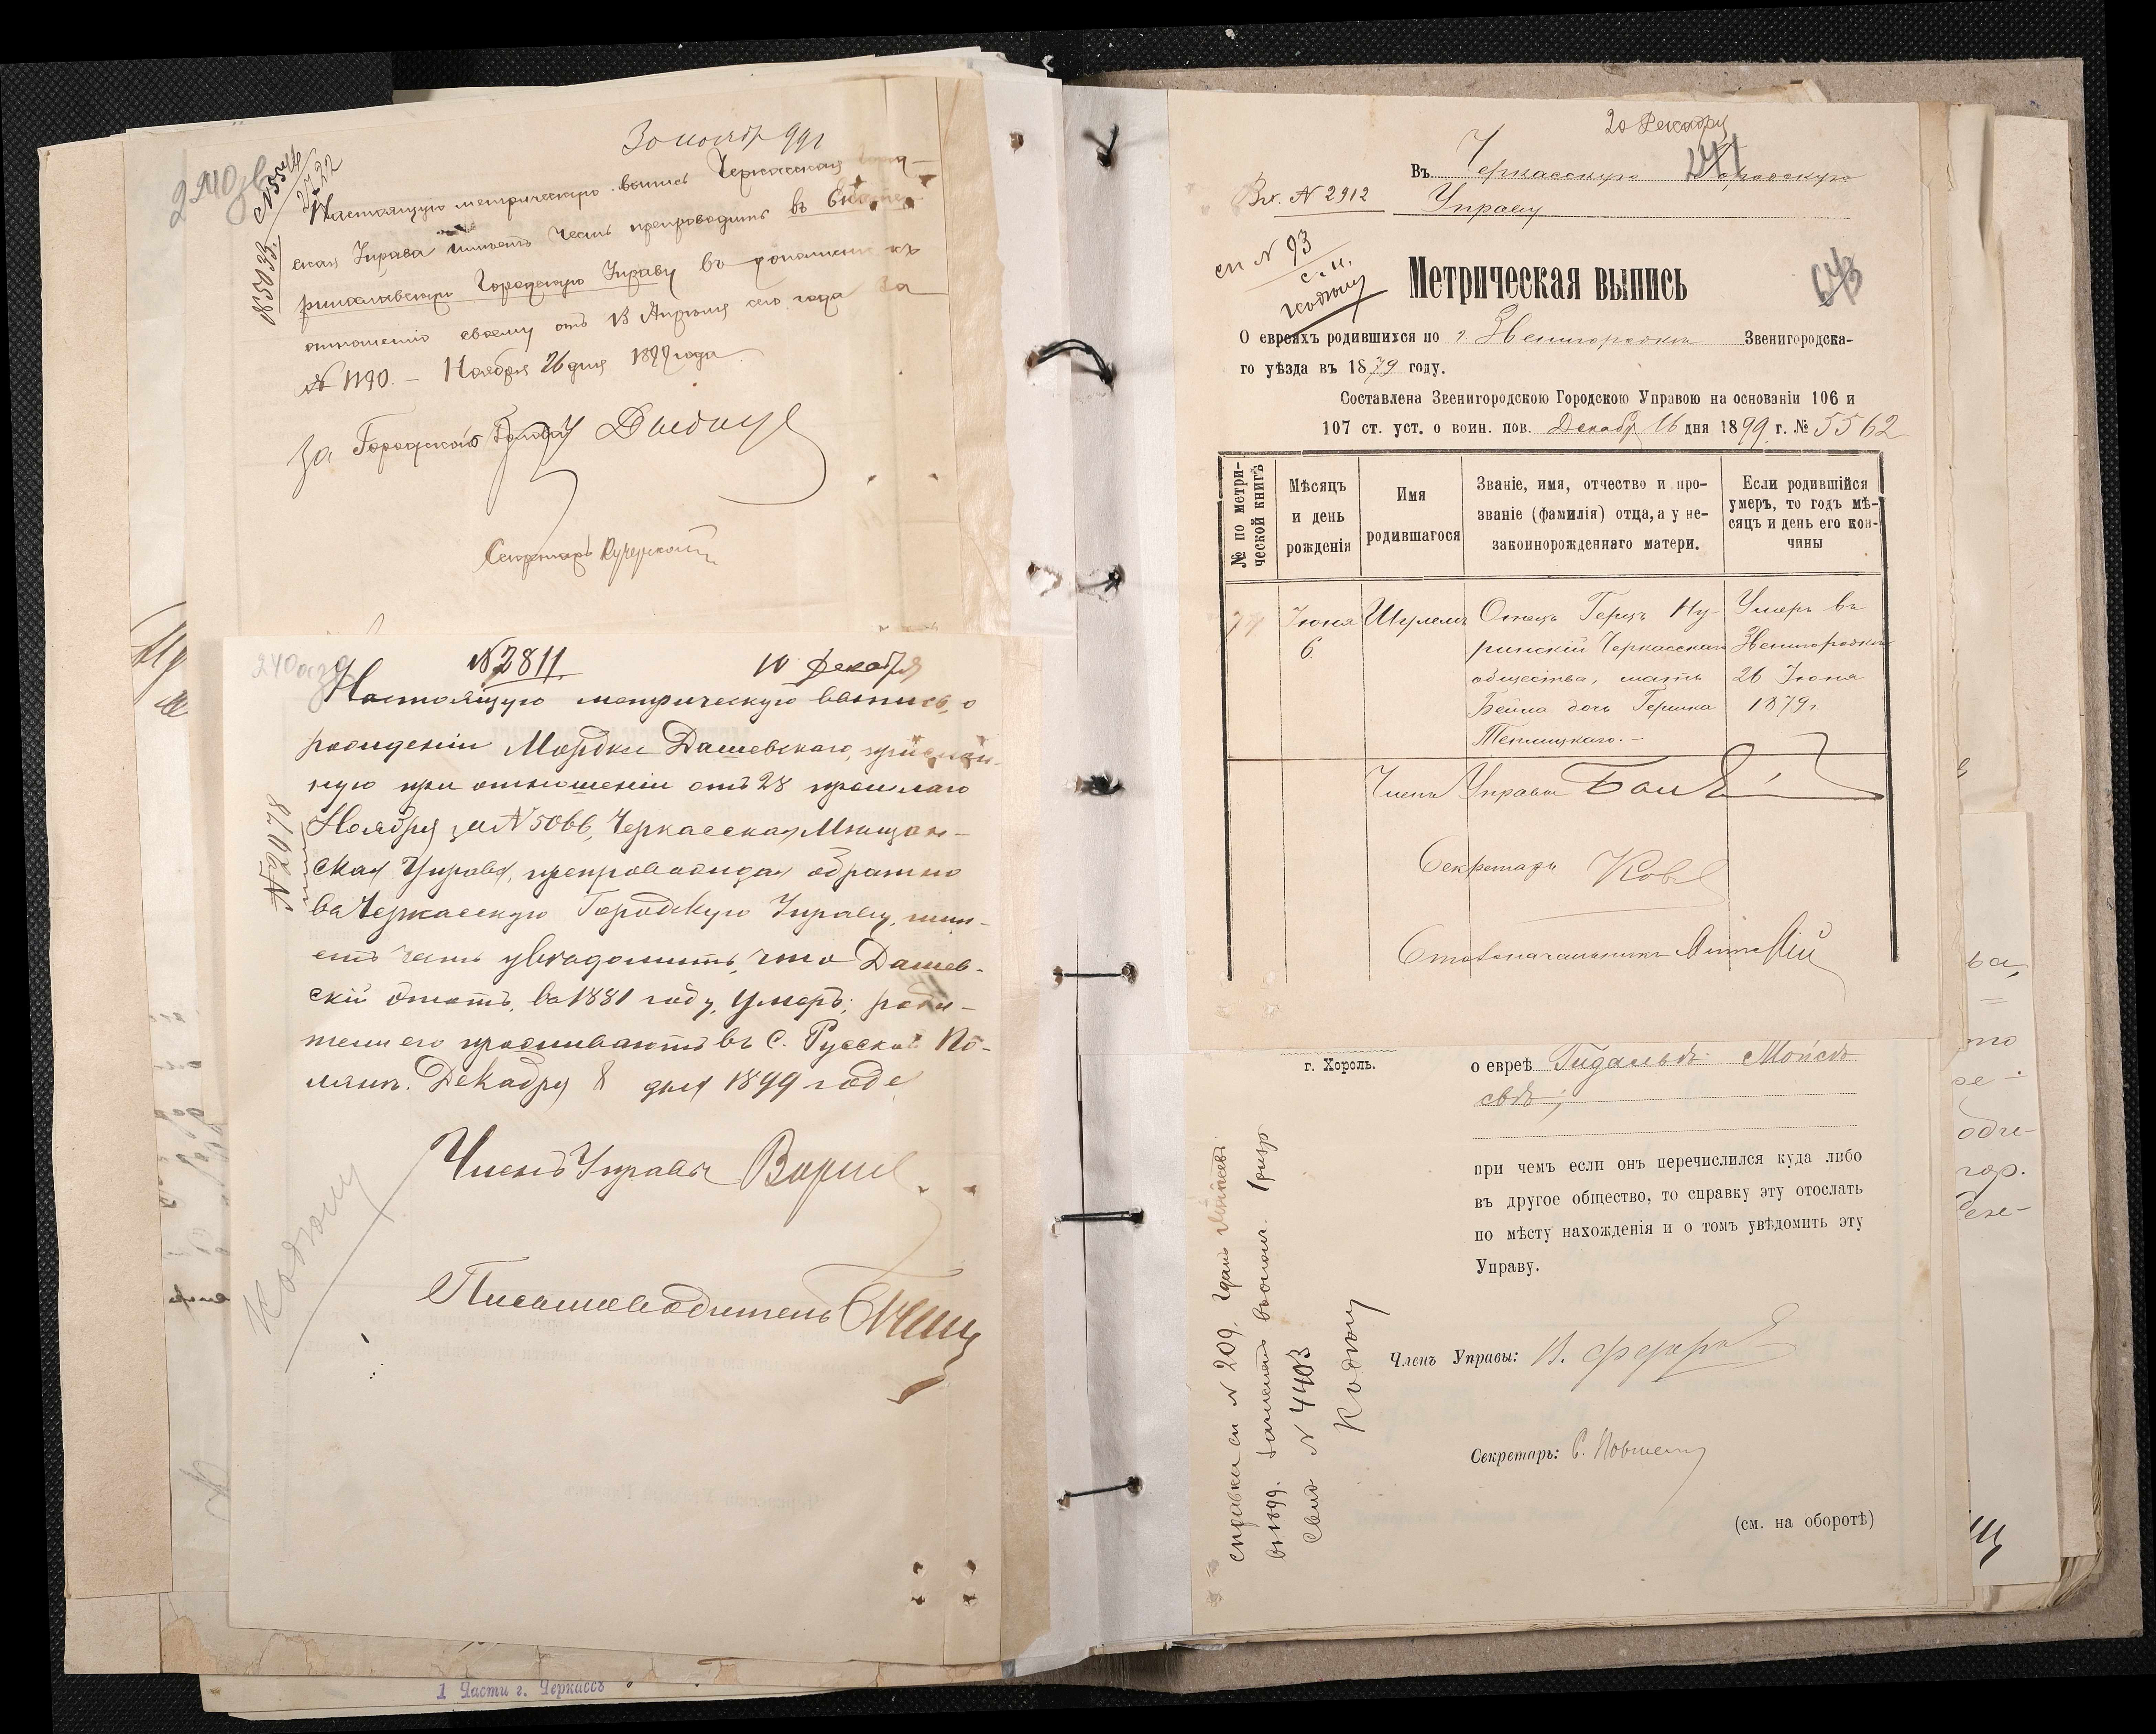 240 зв
№ 5544
№ 85033
30 ноябр 99 г
Настоящую метрическую выпись Черкасская
ская Управа имѣетъ честь препроводить въ Екате
ринославскую Городскую Управу въ дополненіе къ
отношенію своему отъ 13 Апрѣля сего года за
№ 1190. — Ноября 26 дня 1899 года
За Городской Голова
Секретарь
№ 2811.
10 Декабря
Настоящую метрическую выпись, о
рожденіи Мордки Дашевскаго, прислан-
ную при отношеніи отъ 28 прошлаго
Ноября за № 5066, Черкасская Мѣщан-
ская Управа, препровождая обратно
въ Черкасскую Городскую Управу, имѣ-
етъ честь увѣдомить, что Дашев-
скій этотъ, въ 1881 году, умеръ; роди-
тели его проживаютъ въ С. Русской По-
лянѣ. Декабря 8 дня 1899 года
Членъ Управы
Письмоводитель
Кодкину
1 Части г. Черкассъ
20 Декабря
Въ Черкасскую Городскую
Вх. № 2912 Управу
сп № 93
643
Метрическая выпись
О евреяхъ родившихся по г. Звенигородкѣ Звенигородска-
го уѣзда въ 1879 году.
Составлена Звенигородскою Городскою Управою на основаніи 106 и
107 ст. уст. о воин. пов. Декабр 16 дня 1899 г. № 5562
№ по метри-
ческой книгѣ
Мѣсяцъ
и день
рожденія
Имя
родившагося
Званіе, имя, отчество и про-
званіе (фамилія) отца, а у не-
законнорожденнаго матери.
Если родившійся
умеръ, то годъ мѣ-
сяцъ и день его кон-
чины
Іюня Шулемъ Отецъ Герцъ Ну- Умеръ въ
6. ринскій Черкасскаго Звенигородкѣ
общества, мать 26 Іюня
Бейла дочь Гершка 1879 г.
Теплицкаго. —
Членъ Управы
Секретарь
Столоначальникъ
г. Хороль.
о евреѣ Гидальѣ Мойсѣе
при чемъ если онъ перечислился куда либо
въ другое общество, то справку эту отослать
по мѣсту нахожденія и о томъ увѣдомить эту
Управу.
Членъ Управы:
Секретарь:
(см. на оборотѣ)
справка сп № 209.
№ 4403